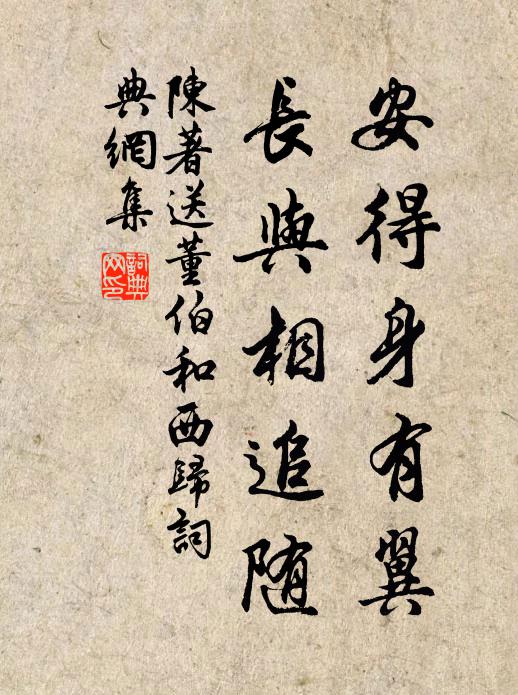 安得身有翼
長與相追隨
陳著送董伯和西歸詞
典網集
詞典网印